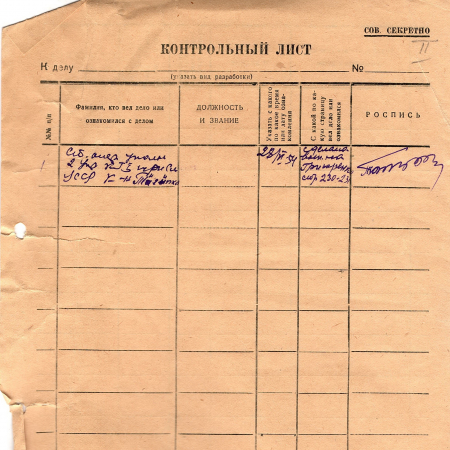 СОВ. СЕКРЕТНО
II
КОНТРОЛЬНЫЙ ЛИСТ
К делу
№
(указать вид разработки)
№№ п/п
Фамилия, кто вел дело или
ознакомился с делом
ДОЛЖНОСТЬ
И ЗВАНИЕ
Указать с какого
по какое время
или дату озна-
комления
С какой по ка-
кую страницу
вел дело или
ознакомился
РОСПИСЬ
1
Ст. опер уполн
2 Упр
УССР к-н
стр 230-23